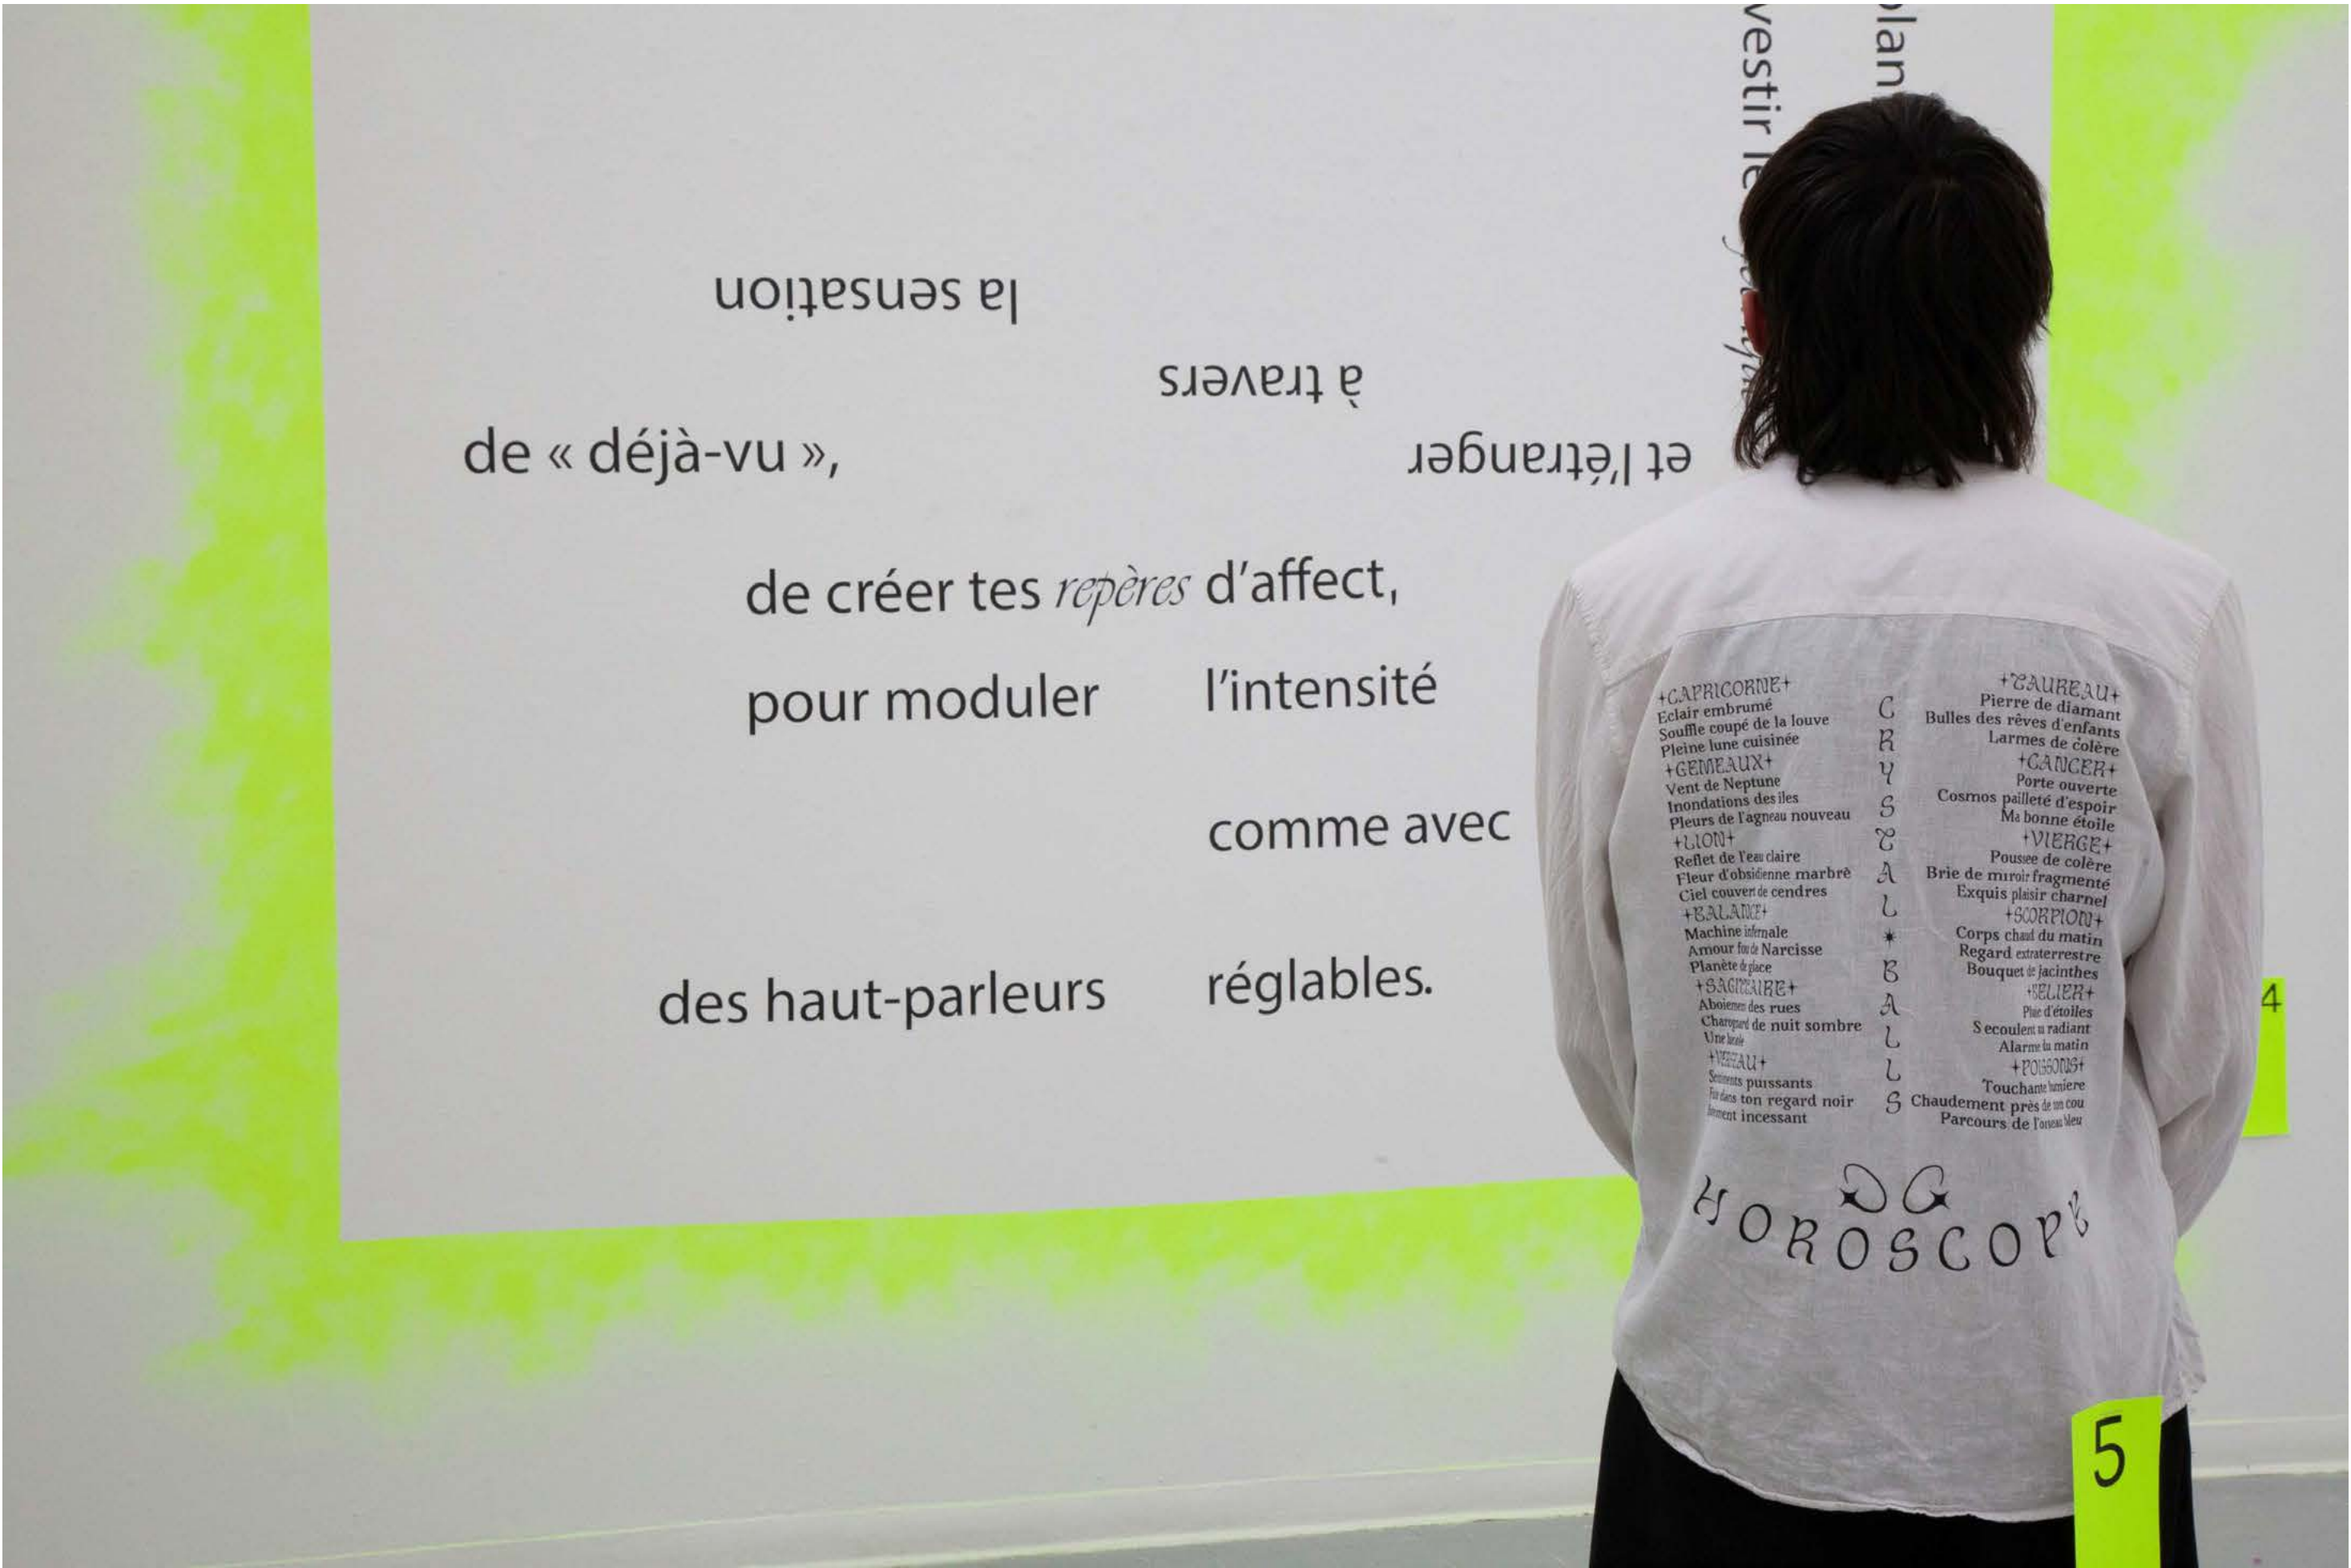 vestir le
plan
et l'étranger
à travers
la sensation
de « déjà-vu »,
de créer tes repères d'affect,
pour moduler l'intensité
comme avec
des haut-parleurs réglables.
+CAPRICORNE+
Eclair embrumé
Souffle coupé de la louve
Pleine lune cuisinée
+GEMEAUX+
Vent de Neptune
Inondations des iles
Pleurs de l'agneau nouveau
+LION+
Reflet de l'eau claire
Fleur d'obsidienne marbré
Ciel couvert de cendres
+BALANCE+
Machine infernale
Amour fou de Narcisse
Planète de glace
+SAGITTAIRE+
Aboiement des rues
de nuit sombre
Une
+VERSEAU+
puissants
dans ton regard noir
incessant
CRYSTAL * BALLS
+TAUREAU+
Pierre de diamant
Bulles des rêves d'enfants
Larmes de colère
+CANCER+
Porte ouverte
Cosmos pailleté d'espoir
Ma bonne étoile
+VIERGE+
Poussee de colère
Brie de miroir fragmenté
Exquis plaisir charnel
+SCORPION+
Corps chaud du matin
Regard extraterrestre
Bouquet de jacinthes
+BELIER+
Pluie d'étoiles
S'ecoulent radiant
Alarme du matin
+POISSONS+
Touchante lumiere
Chaudement près de ton cou
Parcours de l'oiseau bleu
HOROSCOPE
4
5